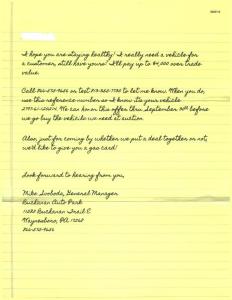 I hope you are staying healthy! I really need a vehicle for
a customer, still have yours? I'll pay up to $4,000 over trade
value.
Call or text to let me know. When you do,
use this reference number so I know its your vehicle
We can honor this offer thru September 30th before
we go buy the vehicles we need at auction.
Also, just for coming by whether we put a deal together or not,
we'd like to give you a gas card!
Look forward to hearing from you,
Mike Svoboda, General Manager
Buchanan Auto Park
Buchanan Trail E.
Waynesboro, PA 17268